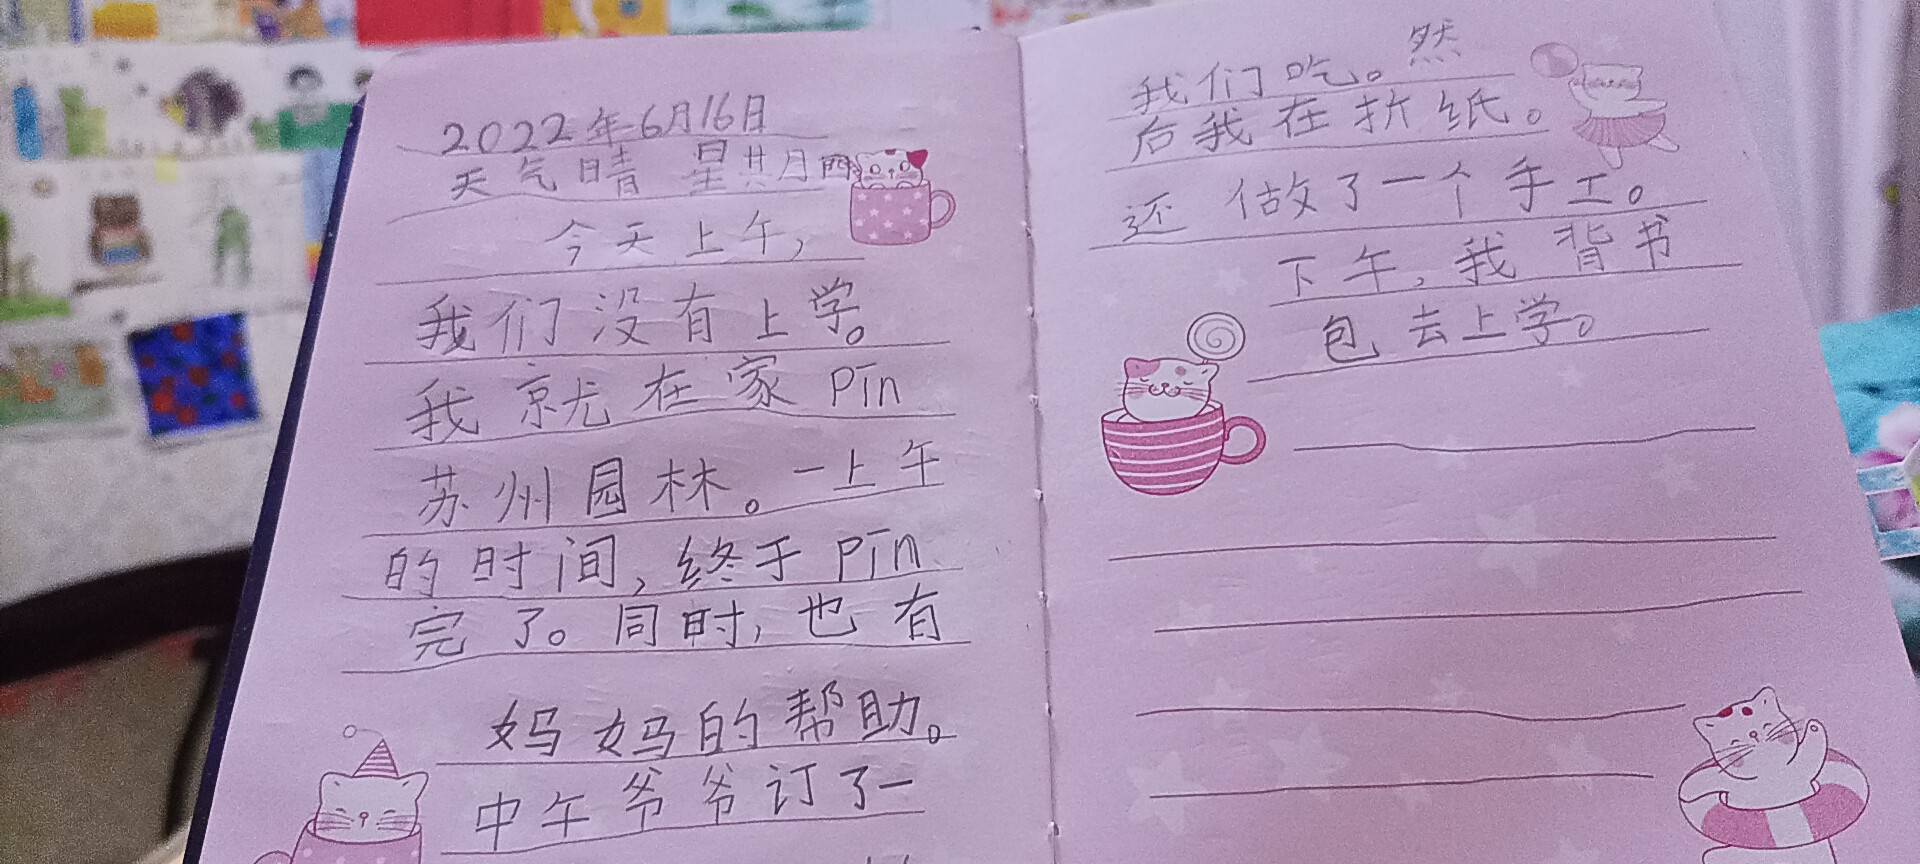 2022年6月16日
天气晴 星其月四
今天上午，
我们没有上学。
我就在家pīn
苏州园林。一上午
的时间，终于pīn
完了。同时，也有
妈妈的帮助。
中午爷爷订了一
我们吃。然
后我在折纸。
还做了一个手工。
下午，我背书
包去上学。